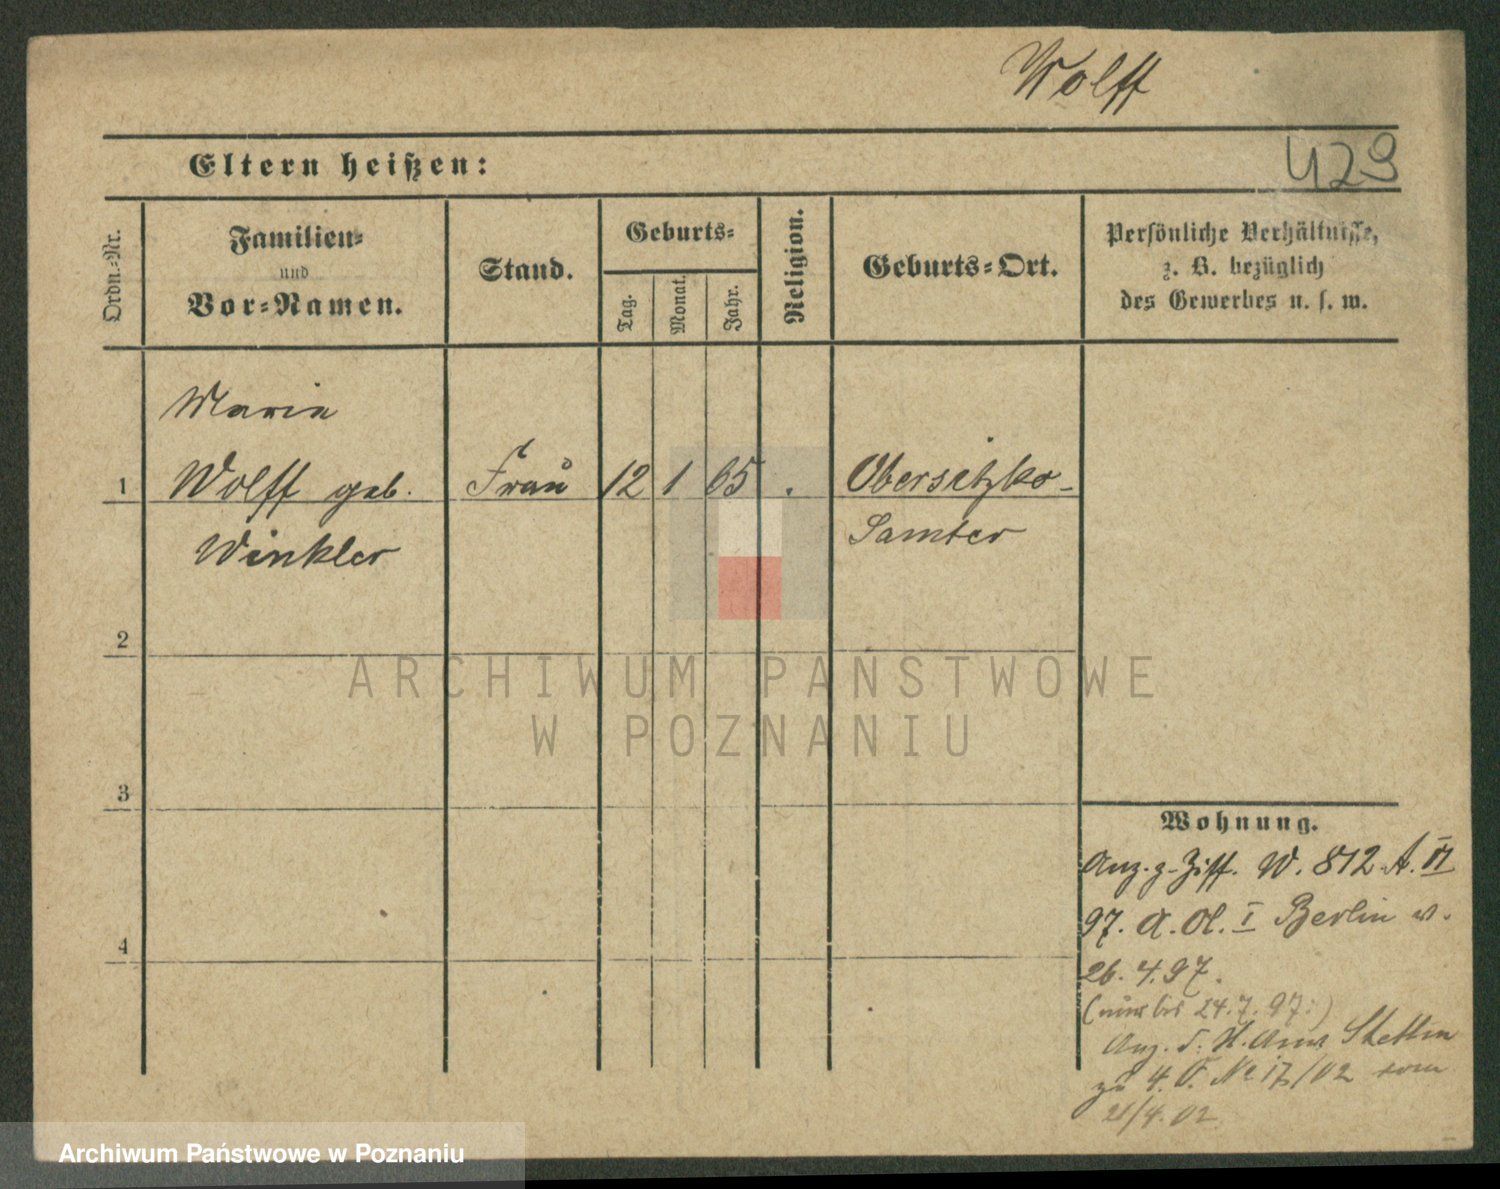 Wolff
429
Eltern heißen:
Ordn.-Nr.
Familien-
und
Vor-Namen.
Stand.
Geburts-
Tag.
Monat.
Jahr.
Religion.
Geburts-Ort.
Persönliche Verhältnisse,
z. B. bezüglich
des Gewerbes u. s. w.
Marie
1 Wolff geb. Frau 12 1 65 . Obersitzko-
Winkler Samter
2
3
4
Wohnung.
Anz. z. Ziff. W. 812 A. II
97. A. I Berlin v.
26.4.97.
(nur bis 24.7.97.)
Anz. d. Stettin
zu 4. No 17/02 vom
21/4.02
ARCHIWUM PAŃSTWOWE
W POZNANIU
Archiwum Państwowe w Poznaniu